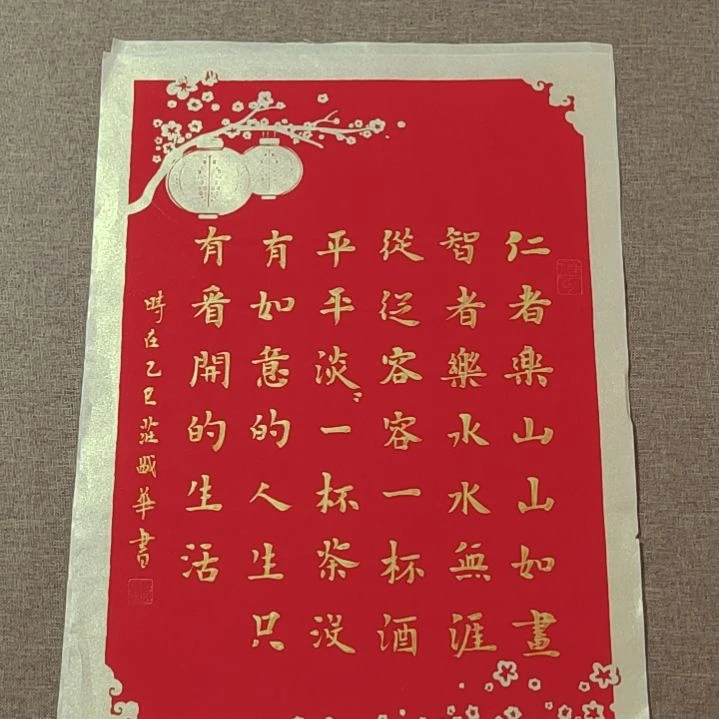 仁者樂山山如畫
智者樂水水無涯
從從容容一杯酒
平平淡〻一杯茶沒
有如意的人生只
有看開的生活
時在乙巳莊晠華書